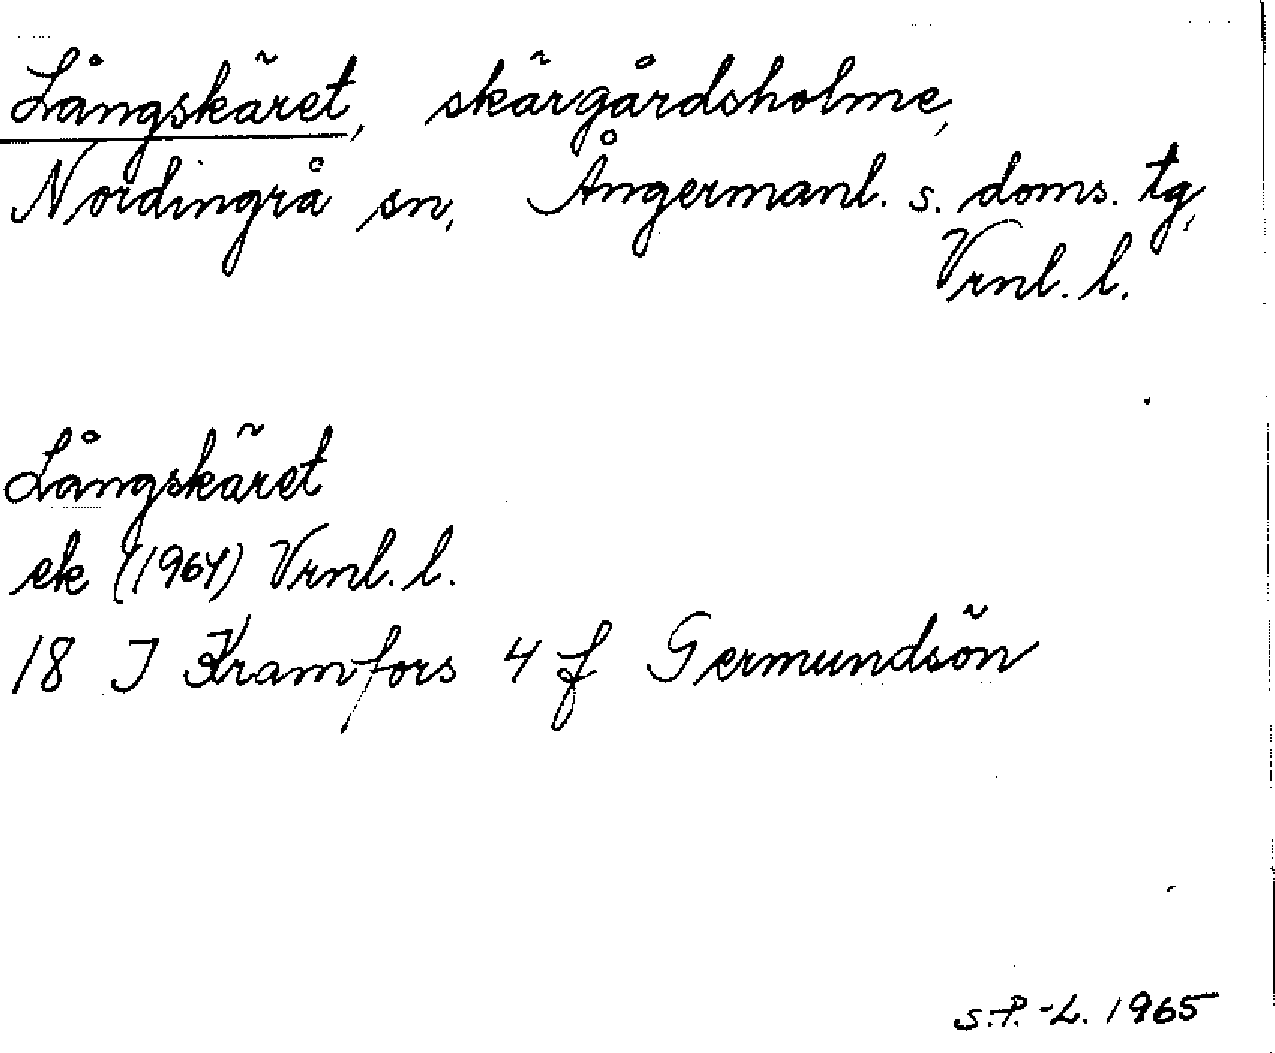 Långskäret, skärgårdsholme,
Nordingrå sn, Ångermanl. s. doms. tg,
Vrnl. l.
Långskäret
ek (1964) Vrnl. l.
18 I Kramfors 4 f Germundsön
S.P.-L. 1965